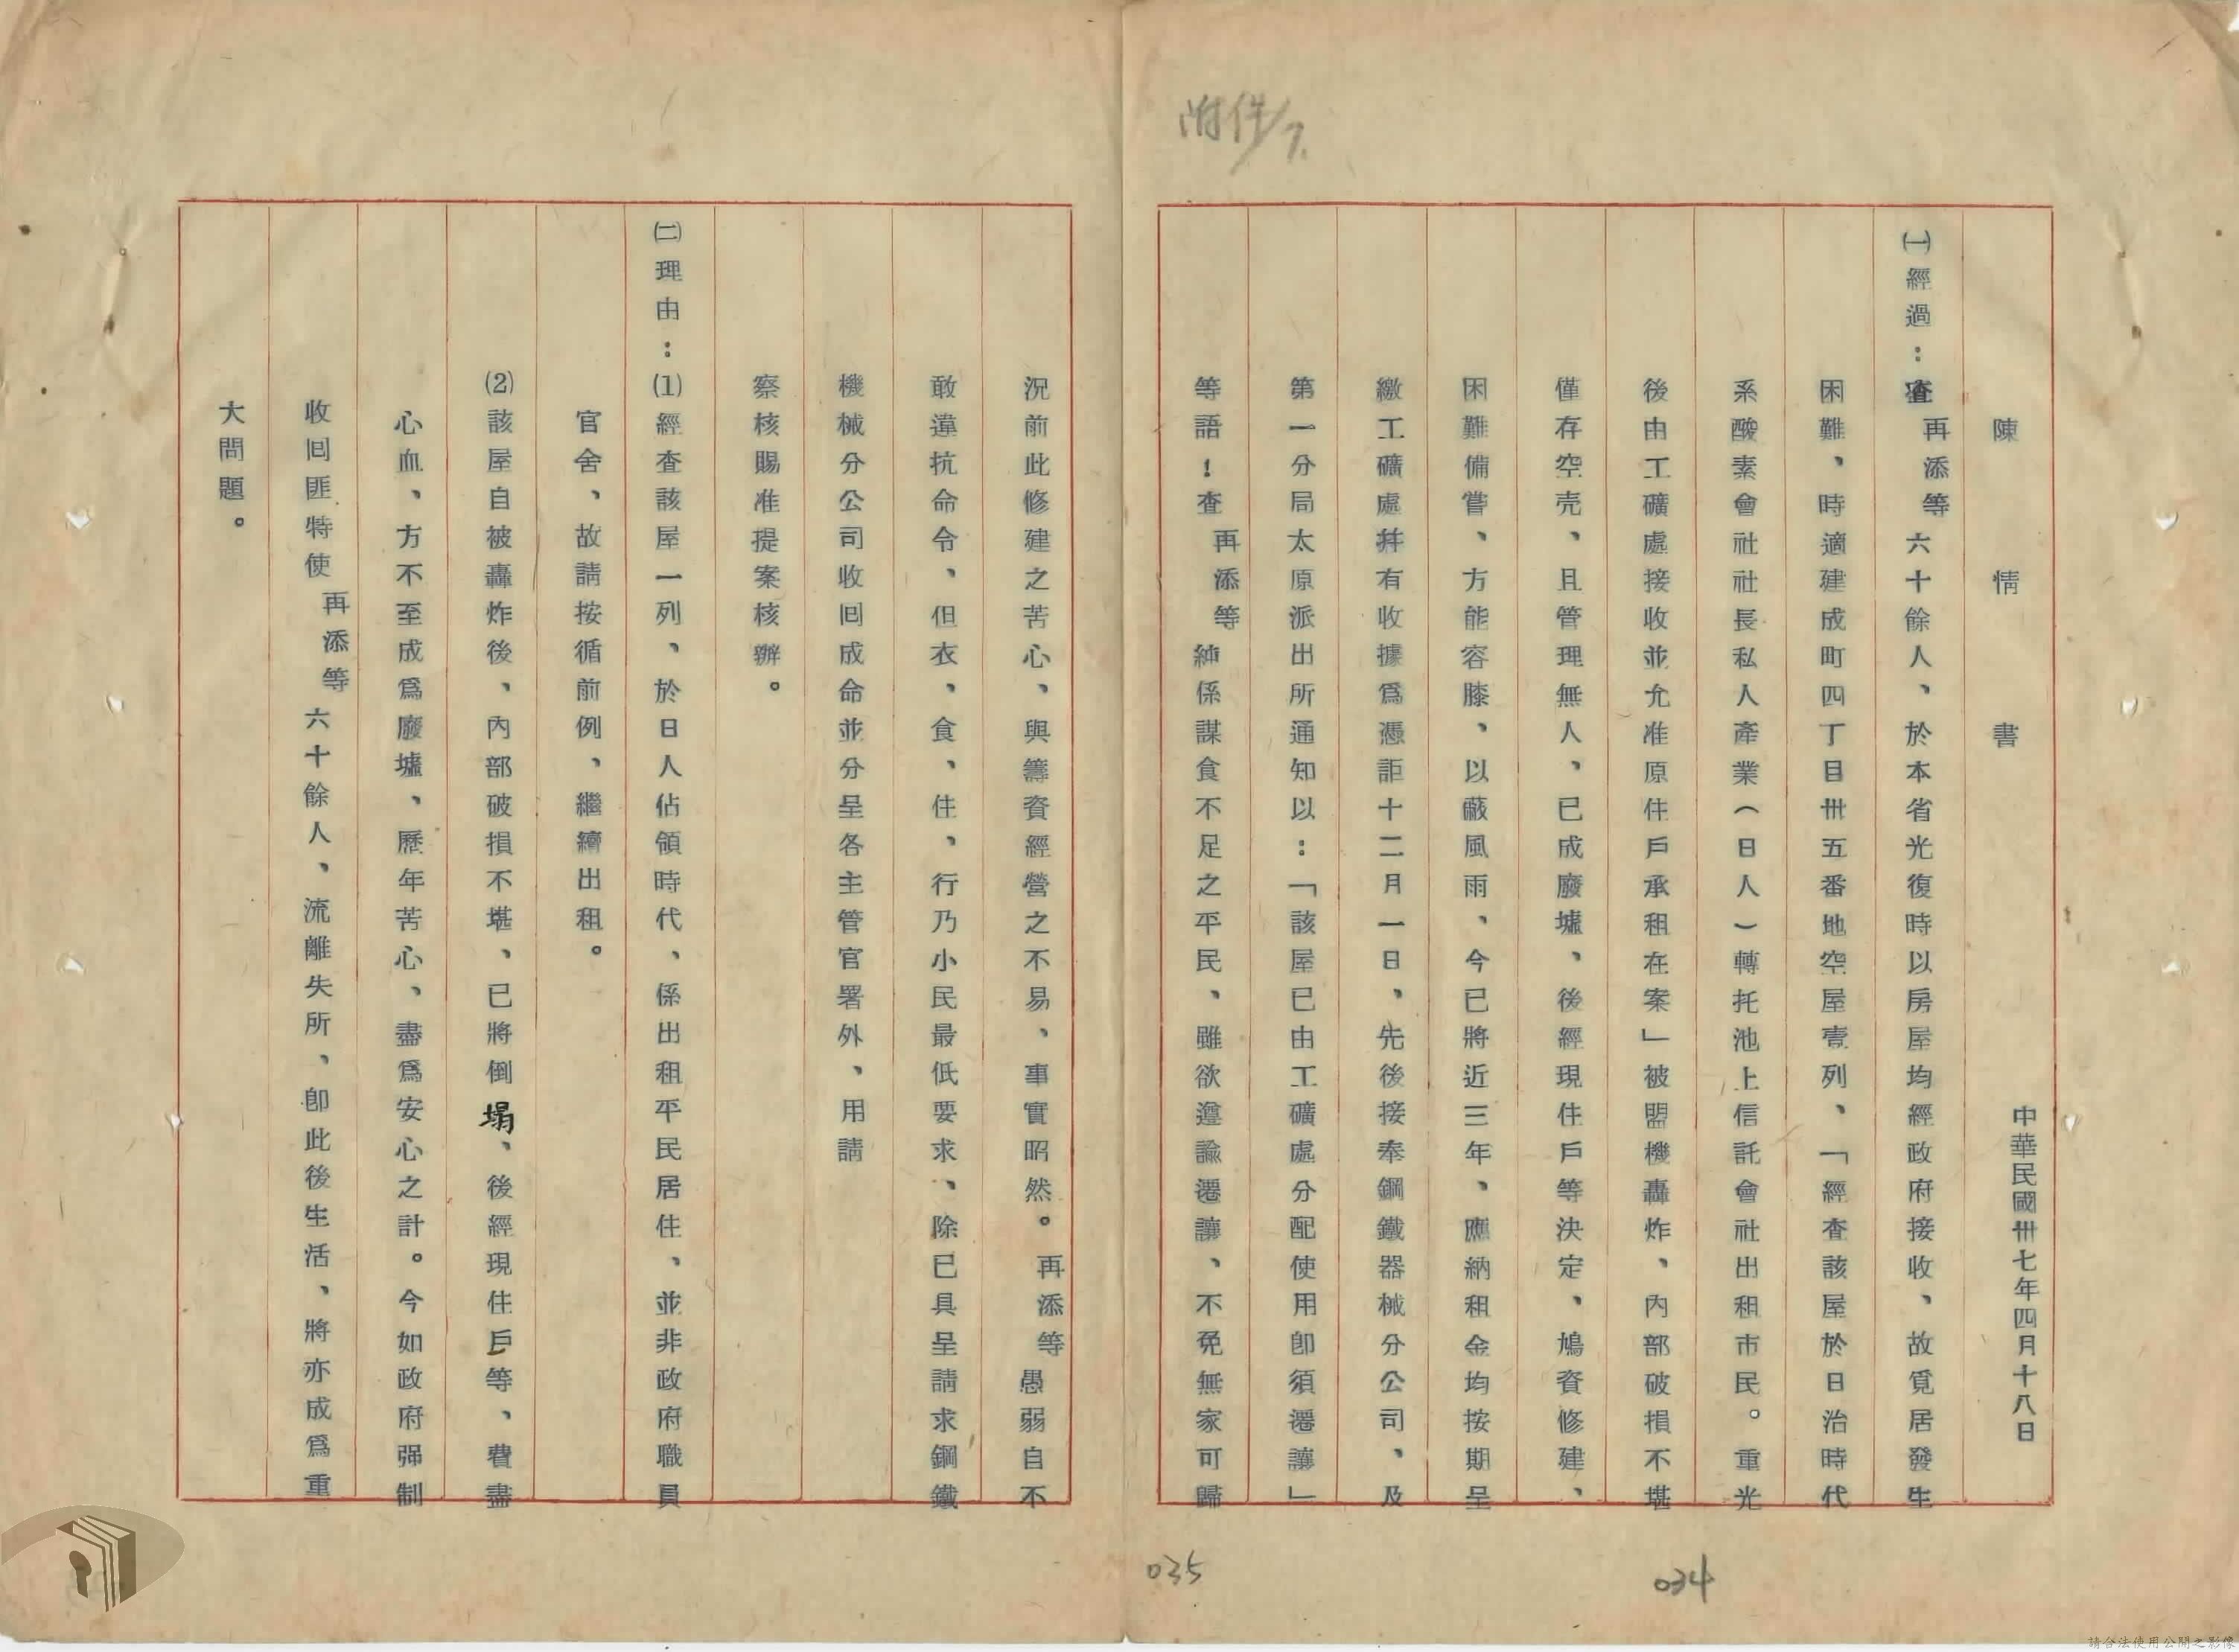 附件/7.
陳情書
中華民國卅七年四月十八日
㈠經過：查再添等六十餘人、於本省光復時以房屋均經政府接收、故覓居發生
困難、時適建成町四丁目卅五番地空屋壹列、「經查該屋於日治時代
系酸素會社社長私人產業（日人）轉托池上信託會社出租市民。重光
後由工礦處接收並允准原住戶承租在案」被盟機轟炸、內部破損不堪
僅存空壳、且管理無人、已成廢墟、後經現住戶等決定、鳩資修建、
困難備嘗、方能容膝、以蔽風雨、今已將近三年、應納租金均按期呈
繳工礦處并有收據為憑詎十二月一日、先後接奉鋼鐵器械分公司、及
第一分局太原派出所通知以：「該屋已由工礦處分配使用卽須遷讓」
等語！查再添等純係謀食不足之平民、雖欲遵諭遷讓、不免無家可歸
034
況前此修建之苦心、與籌資經營之不易、事實昭然。再添等愚弱自不
敢違抗命令、但衣、食、住、行乃小民最低要求、除已具呈請求鋼鐵
機械分公司收囘成命並分呈各主管官署外、用請
察核賜准提案核辦。
㈡理由：⑴經查該屋一列、於日人佔領時代、係出租平民居住、並非政府職員
官舍、故請按循前例、繼續出租。
⑵該屋自被轟炸後、內部破損不堪、已將倒塌、後經現住戶等、費盡
心血、方不至成為廢墟、歷年苦心、盡為安心之計。今如政府强制
收囘匪特使再添等六十餘人、流離失所、卽此後生活、將亦成為重
大問題。
035
請合法使用公開之影像